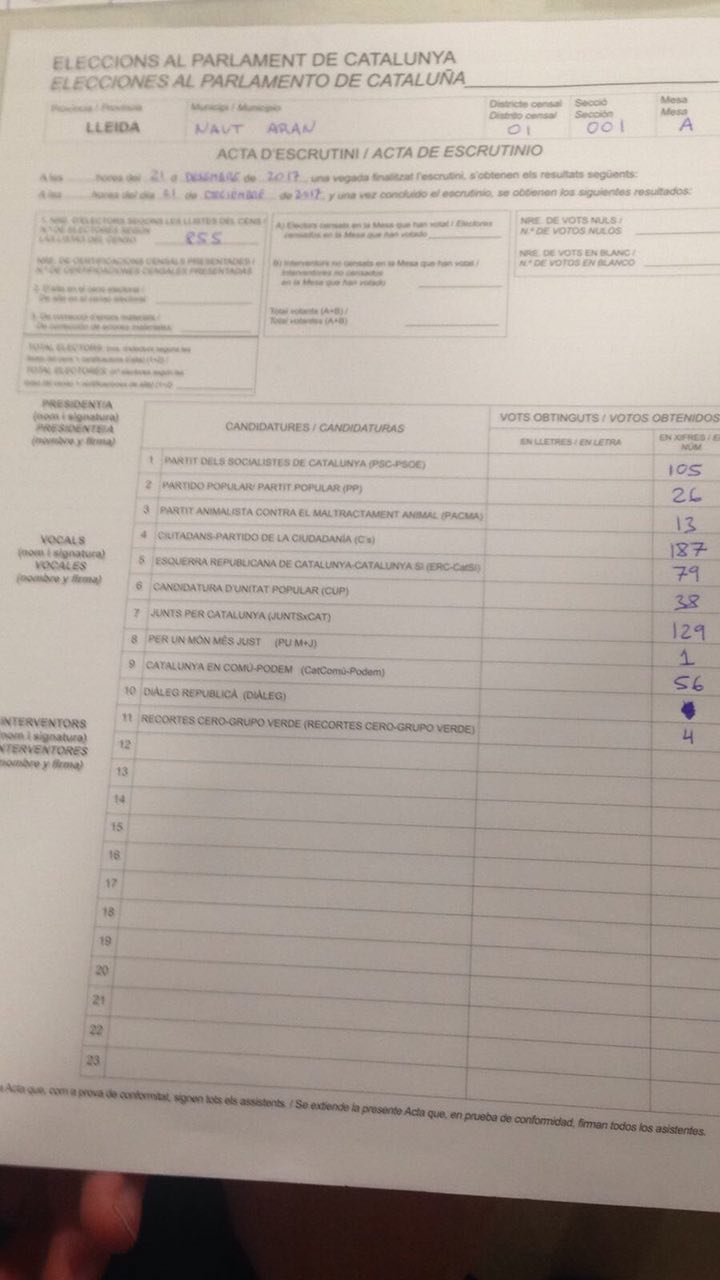 ELECCIONS AL PARLAMENT DE CATALUNYA
ELECCIONES AL PARLAMENTO DE CATALUÑA
Província / Provincia
Municipi / Municipio
Districte censal
Distrito censal
Secció
Sección
Mesa
Mesa
LLEIDA
NAUT ARAN
01
001
A
ACTA D'ESCRUTINI / ACTA DE ESCRUTINIO
A les hores del 21 d de 2017, una vegada finalitzat l'escrutini, s'obtenen els resultats següents:
A las horas del día 21 de de 2017, y una vez concluido el escrutinio, se obtienen los siguientes resultados:
1. NRE. D'ELECTORS SEGONS LES LLISTES DEL CENS /
N.º DE ELECTORES SEGÚN
LAS LISTAS DEL CENSO
855
NRE. DE CERTIFICACIONS CENSALS PRESENTADES /
N.º DE CERTIFICACIONES CENSALES PRESENTADAS
2. D'alta en el cens electoral /
De alta en el censo electoral
3. De correcció d'errors materials /
De corrección de errores materiales
TOTAL ELECTORS
TOTAL ELECTORES
A) Electors censats en la Mesa que han votat / Electores
censados en la Mesa que han votado
B) Interventors no censats en la Mesa que han votat /
Interventores no censados
en la Mesa que han votado
Total votants (A+B) /
Total votantes (A+B)
NRE. DE VOTS NULS /
N.º DE VOTOS NULOS
NRE. DE VOTS EN BLANC /
N.º DE VOTOS EN BLANCO
PRESIDENT/A
(nom i signatura)
PRESIDENTE/A
(nombre y firma)
VOCALS
(nom i signatura)
VOCALES
(nombre y firma)
INTERVENTORS
(nom i signatura)
INTERVENTORES
(nombre y firma)
CANDIDATURES / CANDIDATURAS
VOTS OBTINGUTS / VOTOS OBTENIDOS
EN LLETRES / EN LETRA
EN XIFRES / E
NÚM
1 PARTIT DELS SOCIALISTES DE CATALUNYA (PSC-PSOE) 105
2 PARTIDO POPULAR/ PARTIT POPULAR (PP) 26
3 PARTIT ANIMALISTA CONTRA EL MALTRACTAMENT ANIMAL (PACMA) 13
4 CIUTADANS-PARTIDO DE LA CIUDADANÍA (C's) 187
5 ESQUERRA REPUBLICANA DE CATALUNYA-CATALUNYA SÍ (ERC-CatSí) 79
6 CANDIDATURA D'UNITAT POPULAR (CUP) 38
7 JUNTS PER CATALUNYA (JUNTSxCAT) 129
8 PER UN MÓN MÉS JUST (PU M+J) 1
9 CATALUNYA EN COMÚ-PODEM (CatComú-Podem) 56
10 DIÀLEG REPUBLICÀ (DIÀLEG)
11 RECORTES CERO-GRUPO VERDE (RECORTES CERO-GRUPO VERDE) 4
12
13
14
15
16
17
18
19
20
21
22
23
Acta que, com a prova de conformitat, signen tots els assistents. / Se extiende la presente Acta que, en prueba de conformidad, firman todos los asistentes.